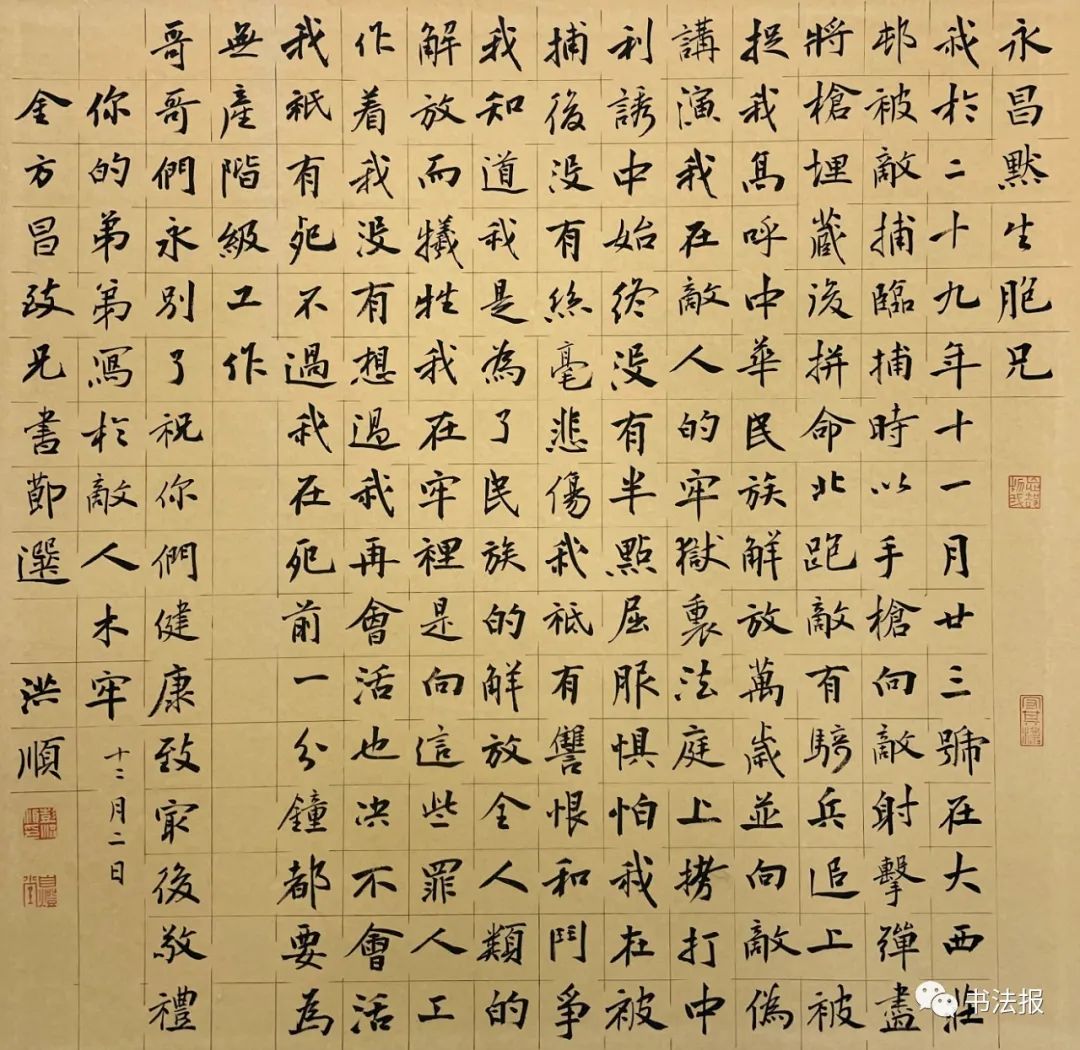 永昌默生胞兄
我於二十九年十一月廿三號在大西莊
邨被敵捕臨捕時以手槍向敵射擊彈盡
將槍埋藏後拼命北跑敵有騎兵追上被
捉我高呼中華民族解放萬歲並向敵偽
講演我在敵人的牢獄裏法庭上拷打中
利誘中始終沒有半點屈服惧怕我在被
捕後没有絲毫悲傷我祗有讐恨和鬥爭
我知道我是為了民族的解放全人類的
解放而犧牲我在牢裡是向這些罪人工
作着我没有想過我再會活也决不會活
我祗有死不過我在死前一分鐘都要為
無產階級工作
哥哥們永別了祝你們健康致最後敬禮
你的弟弟寫於敵人木牢十二月二日
金方昌致兄書節選 洪順
书法报